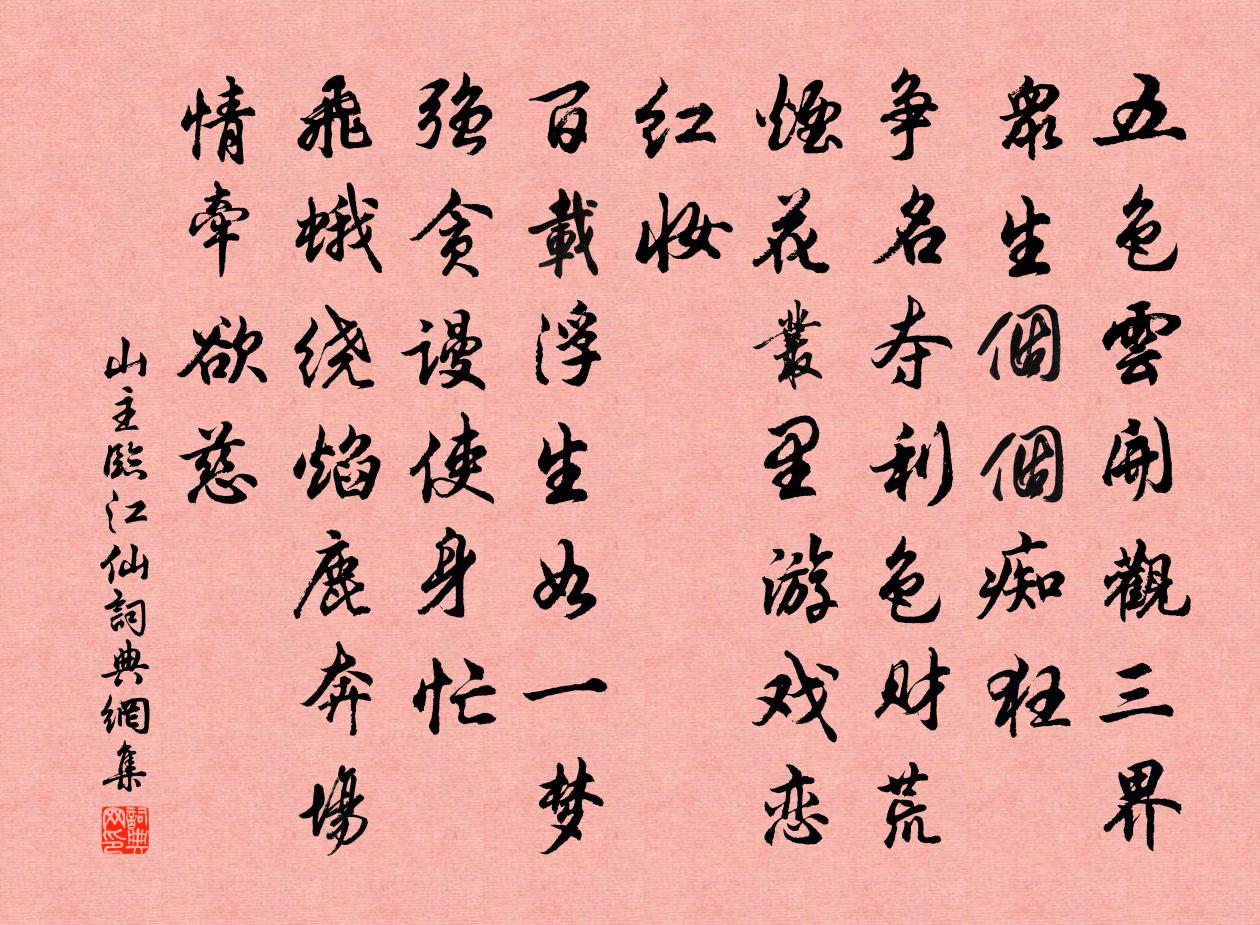 五色雲開觀三界
眾生個個痴狂
争名夺利色财荒
煙花叢里游戏恋
红妆
百載浮生如一梦
强贪谩使身忙
飛蛾绕焰鹿奔場
情牽欲慈
山主臨江仙詞典網集
詞典网印